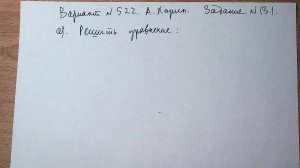 Вариант N 522. А. Ларин. Задание N 13.
а). Решить уравнение: